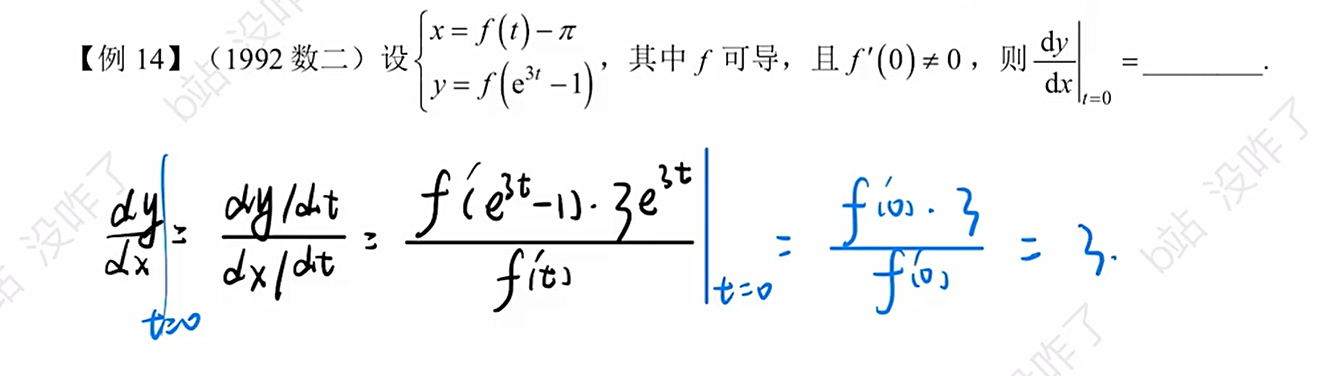 【例 14】（1992 数二）设 { x = f(t) − π , y = f(e^{3t} − 1) ，其中 f 可导，且 f′(0) ≠ 0，则 dy/dx|_{t=0} = ________.
dy/dx|_{t=0} = (dy/dt)/(dx/dt) = f′(e^{3t}−1)·3e^{3t} / f′(t) |_{t=0} = f′(0)·3 / f′(0) = 3.
b站 没咋了
b站 没咋了
b站 没咋了
没咋了